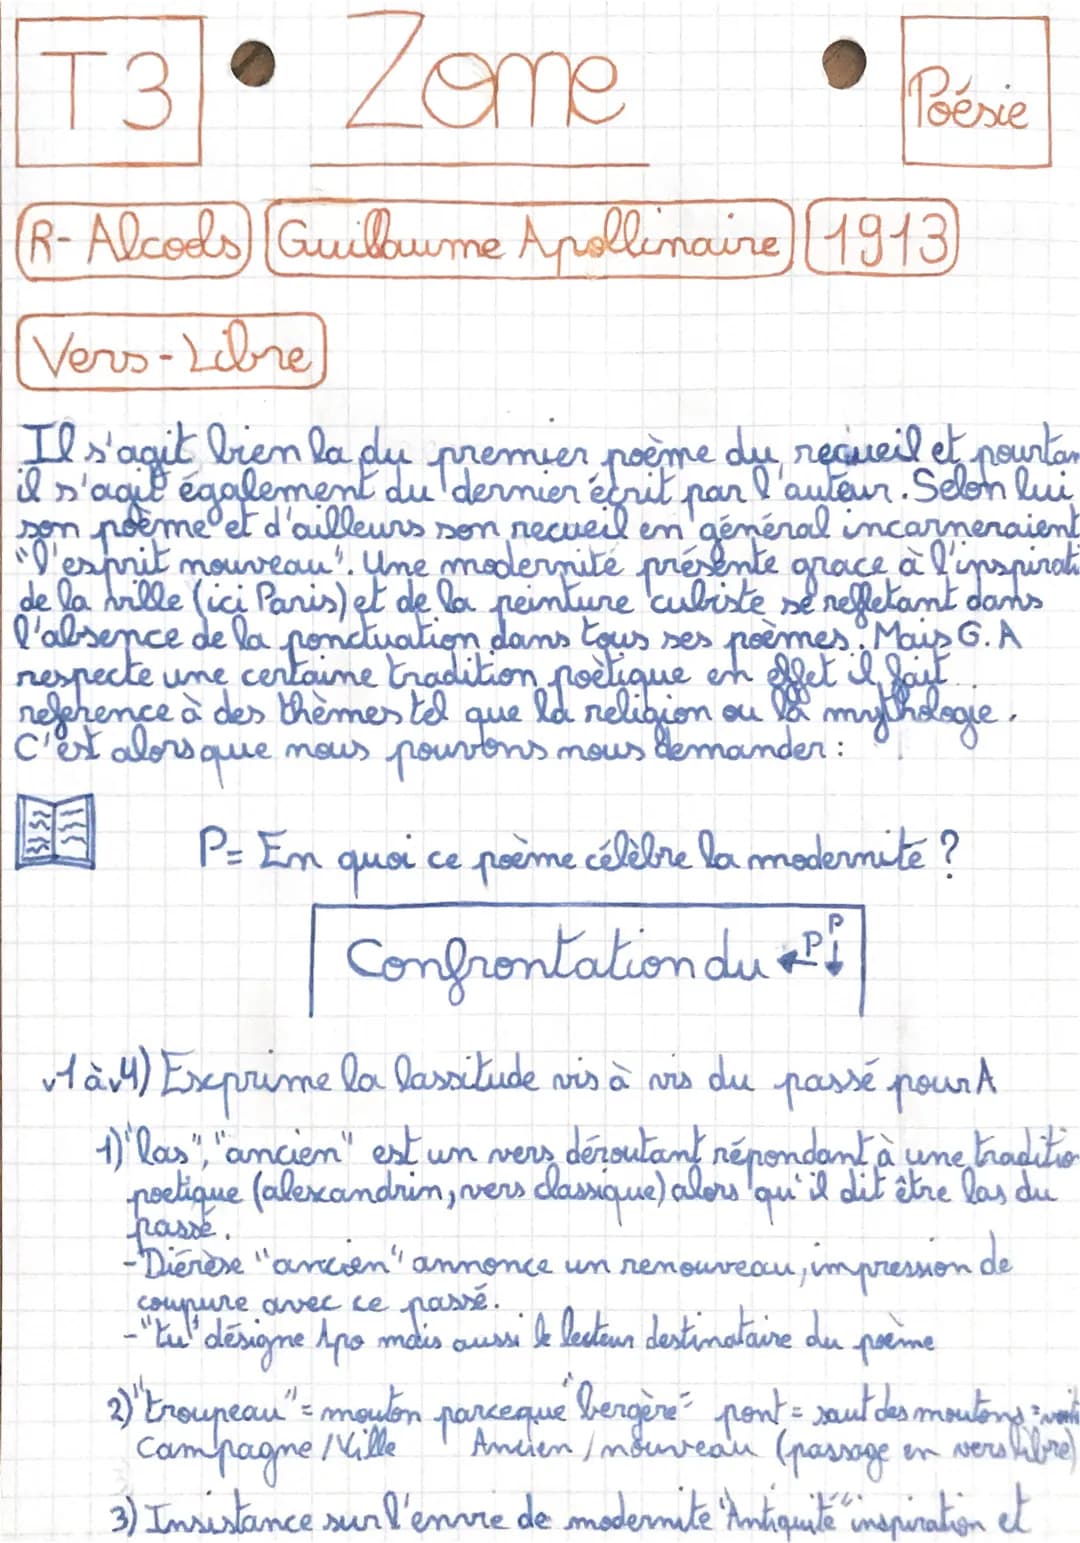 T3
Zone
Poésie
R-Alcools Guillaume Apollinaire 1913
Vers-Libre
Il s'agit bien la du premier poème du recueil et pourtan
il s'agit également du dernier écrit par l'auteur. Selon lui
son poème et d'ailleurs son recueil en général incarneraient
"l'esprit nouveau". Une modernité présente grace à l'inspirati
de la ville (ici Paris) et de la peinture cubiste se reffletant dans
l'absence de la ponctuation dans tous ses poèmes. Mais G.A
respecte une certaine tradition poètique en effet il fait
reference à des thèmes tel que la religion ou la mythologie.
C'est alors que nous pouvons nous demander :
P= En quoi ce poème célèbre la modernité ?
Confrontation du ←P P↓
v1 à v4) Exprime la lassitude vis à vis du passé pour A
1) "las", "ancien" est un vers déroutant répondant à une traditio
poetique (alexandrin, vers classique) alors qu'il dit être las du
passé.
-Diérèse "ancien" annonce un renouveau, impression de
coupure avec ce passé.
-"tu" désigne Apo mais aussi le lecteur destinataire du poème
2) "troupeau" = mouton parceque "bergère" pont = saut des moutons =
Campagne / Ville Ancien / nouveau (passage en vers libre)
3) Insistance sur l'envie de modernité "Antiquité" inspiration et